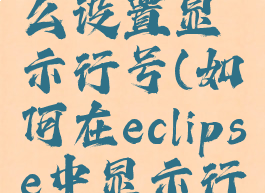 么设置显
示行号(如
何在eclips
e中显示行